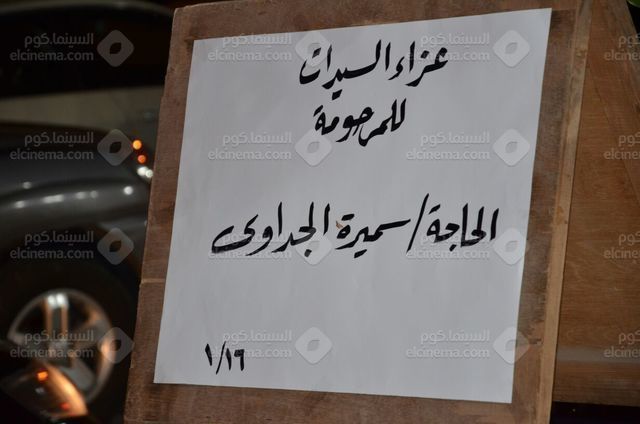 عزاء السيدات
للمرحومة
الحاجة/ سميرة الجداوى
١/١٦
السينما.كوم
elcinema.com